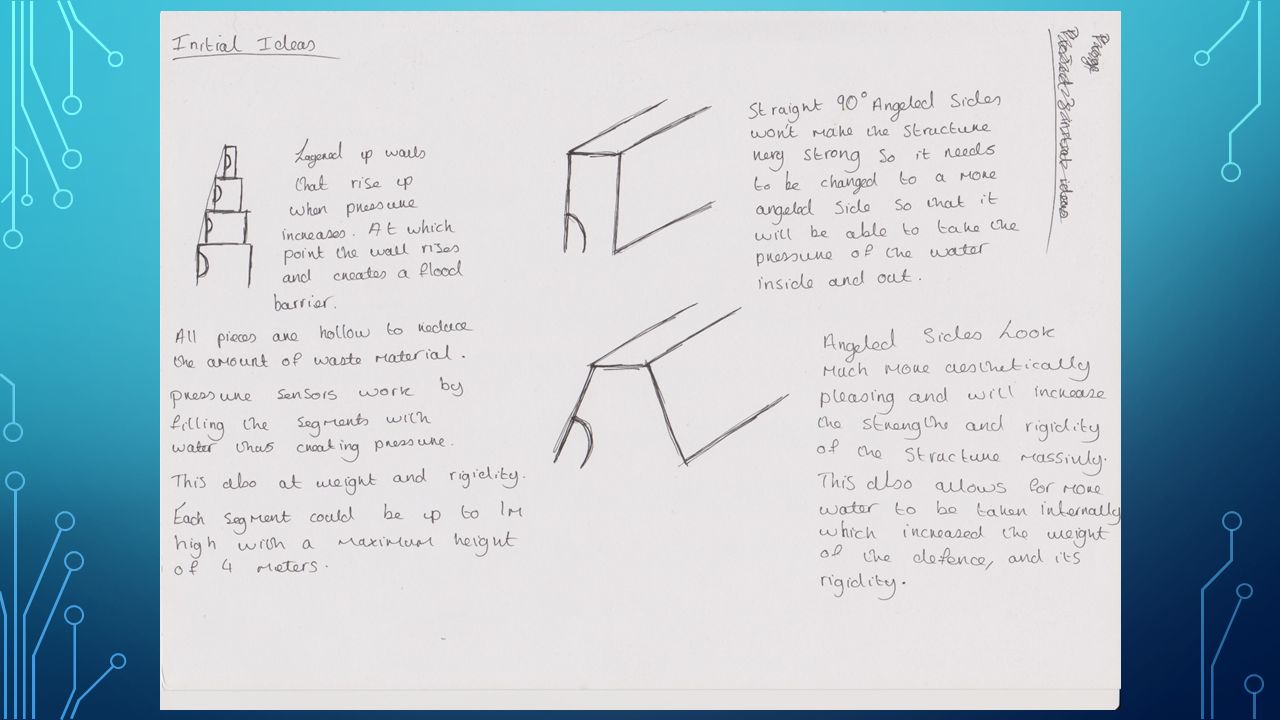 Initial Ideas
Layered up walls
that rise up
when pressure
increases. At which
point the wall rises
and creates a flood
barrier.
All pieces are hollow to reduce
the amount of waste material.
pressure sensors work by
filling the segments with
water thus creating pressure.
This also at weight and rigidity.
Each segment could be up to 1m
high with a maximum height
of 4 meters.
Straight 90° Angeled Sides
won't make the structure
very strong so it needs
to be changed to a more
angeled side so that it
will be able to take the
pressure of the water
inside and out.
Angeled Sides Look
much more aesthetically
pleasing and will increase
the strength and rigidity
of the structure massivly.
This also allows for more
water to be taken internally
which increased the weight
of the defence, and its
rigidity.